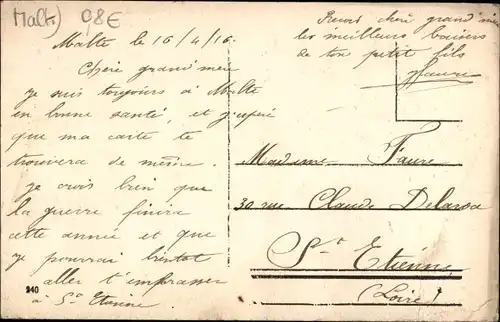 Malte 98E
Malte le 16/4/16.
Chère grand'mère
je suis toujours à Malte
en bonne santé, et j'espère
que ma carte te
trouvera de même.
je crois bien que
la guerre finira
cette année et que
je pourrai bientot
aller t'embrasser
à St Etienne
240
Reçois chère grand'mère
les meilleurs baisers
de ton petit fils
Faure
Madame Faure
30 rue Claude Delaroa
St Etienne
(Loire)